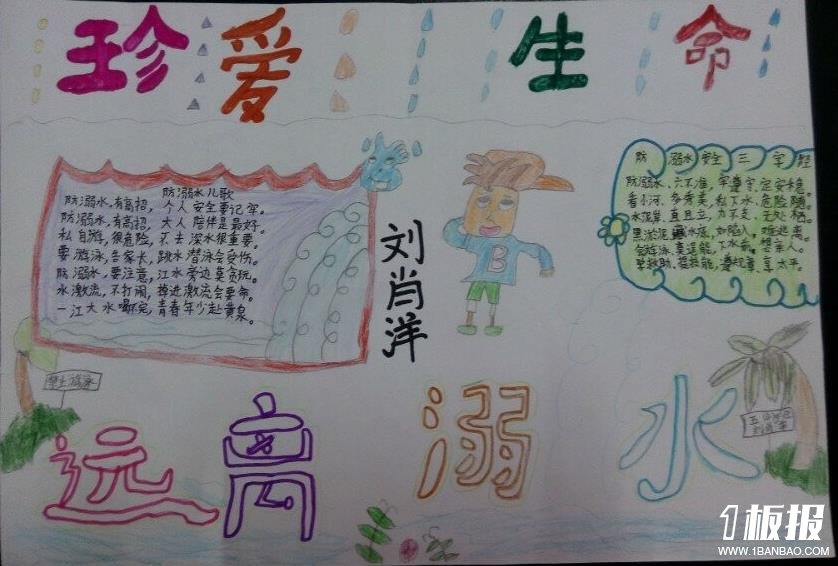 珍爱生命
防溺水儿歌
防溺水,有高招,个人安全要记牢。
防溺水,有高招,大人陪伴是最好。
私自游,很危险,不去深水很重要。
要游泳,告家长,跳水潜泳会受伤。
防溺水,要注意,江水旁边莫贪玩。
水激流,不打闹,掉进激流会要命。
一江大水喝不完,青春年少赴黄泉。
刘肖洋
B
防溺水安全三字经
防溺水,六不准,牢遵守,定安全。
看小河,多秀美,私下水,危险随。
水泥岸,直且立,力不支,无处栖。
黑淤泥,藏水底,如陷入,难逃离。
会游泳,莫逞能,下水前,想亲人。
学救助,提技能,遵纪章,享太平。
禁止游泳
远离溺水
1板报
WWW.1BANBAO.COM